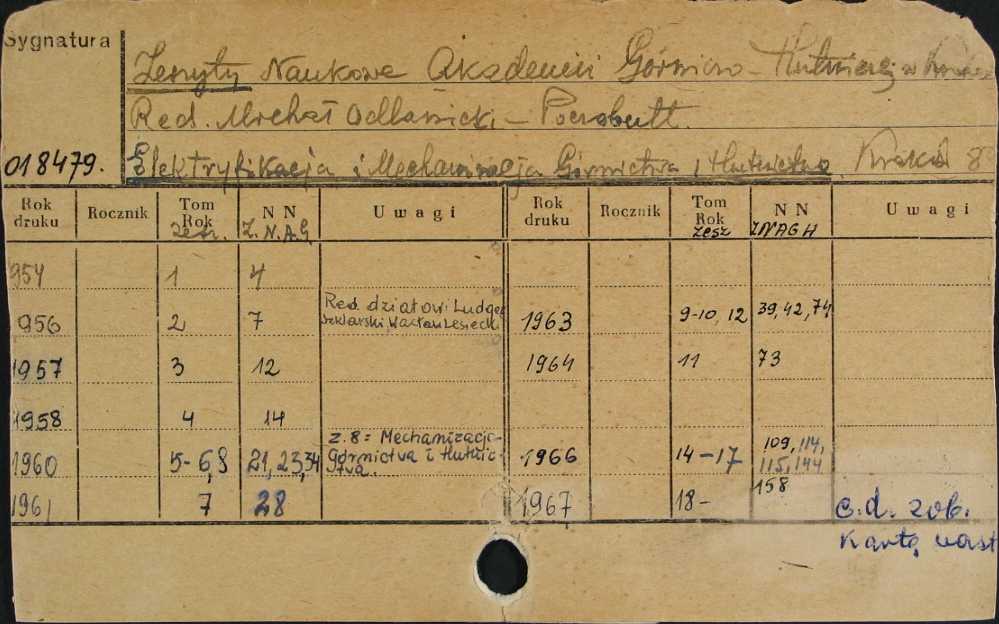 Sygnatura
Zeszyty Naukowe Akademii Górniczo-Hutniczej w
Red. Michał Odlanicki-Poczobutt.
018479. Elektryfikacja i Mechanizacja Górnictwa i Hutnictwa. Kraków 8°
Rok druku Rocznik Tom Rok zesz. N N Z.N.A.G Uwagi Rok druku Rocznik Tom Rok zesz N N ZNAGH Uwagi
954 1 4
956 2 7 Red. działowi Ludger Szklarski, Wacław Lesiecki 1963 9-10, 12 39, 42, 74
1957 3 12 1964 11 73
1958 4 14
1960 5-6, 8 21, 23, 34 z. 8 = Mechanizacja Górnictwa i Hutnictwa. 1966 14-17 109, 114, 115, 144
1961 7 28 1967 18- 158 c.d. zob.
kartę nast